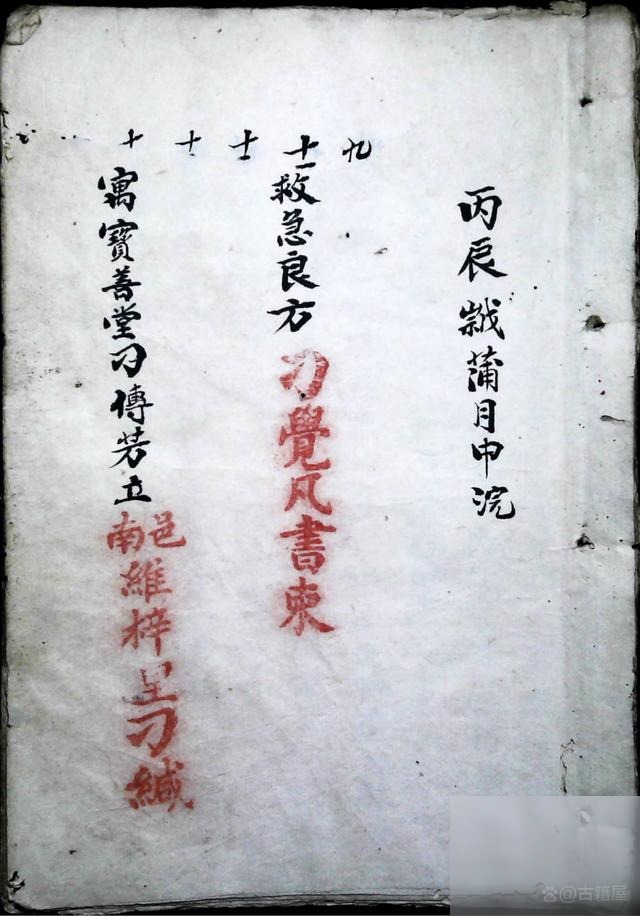 丙辰歲蒲月中浣
九
十一救急良方
刁覺凡書柬
十
十
十
寓寶善堂刁傳芳立
邑南維梓里刁緘
@古籍屋